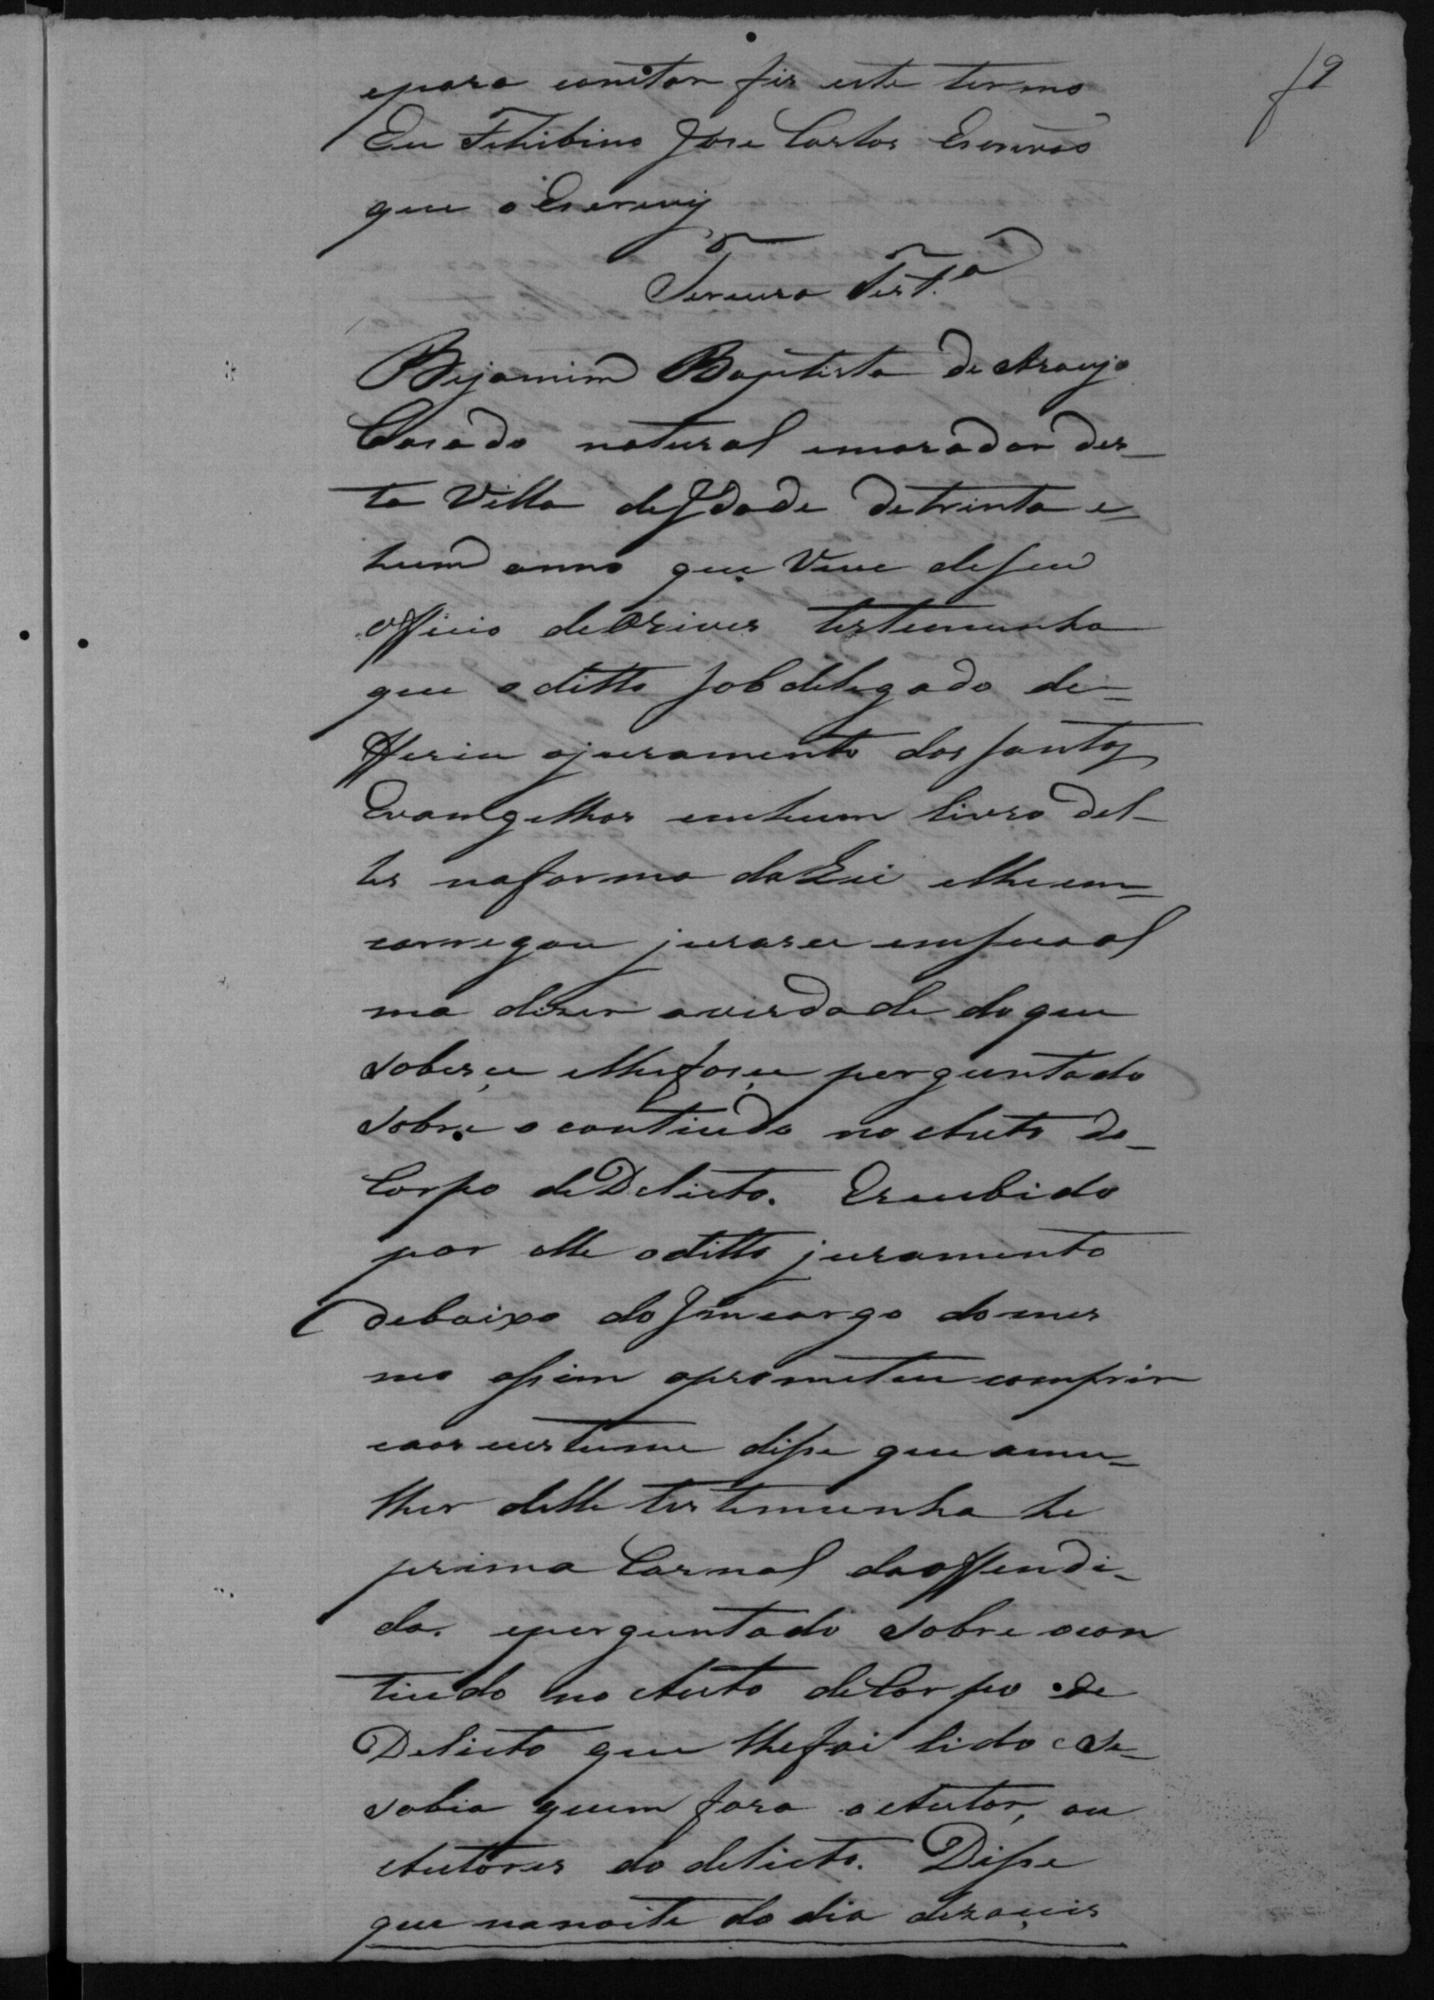 f 9
epara constar fis este termo
Eu José Castor Escrivão
que o Escrevij
Terceira Test.ª
Bejamim Baptista de Araujo
Casado natural emorador des-
ta Villa de Idade de trinta e-
hum anno que vive de seu
officio de Orives testemunha
que o ditto sobdelegado de-
fferiu ojuramento dos Santos
Evangelhos emhum livro del-
les naforma da Lei elheem-
carregou jurase emsua al
ma diser averdade doque
sobese elhefose perguntado
sobre o contiudo no Auto de-
Corpo de Delicto. Erecebido
por elle oditto juramento
debaixo do Imcargo domes
mo assim oprometeu comprir
eaos custume disse que amu-
lher delle testemunha he
prima Carnal do offendi-
do. eperguntado sobre ocon
tiudo no Auto de Corpo de
Delicto que lhefoi lido e se-
sabia quem fora o Autor, ou
Autores do delicto. Disse
que nanoite do dia dezaçeis